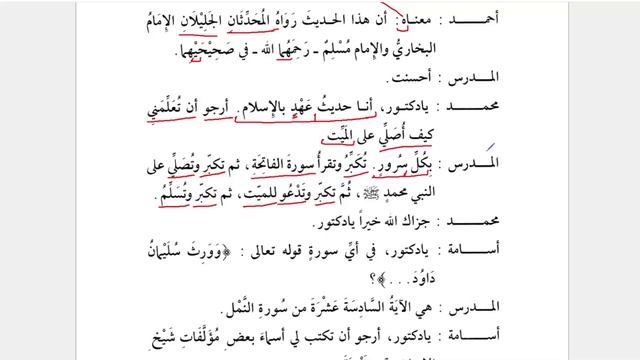 أحمـــد : معناه : أن هذا الحديثَ رَوَاهُ المُحَدِّثَانِ الجَلِيْلَانِ الإمَامُ
البخاريُّ والإمام مُسْلِمٌ ـ رَحِمَهُما الله ـ في صَحِيْحَيْهِما.
المـــدرس : أحسنت.
محمـــد : يادكتور، أنـا حديثُ عَهْدٍ بالإسلام. أرجو أن تُعَلِّمَني
كيف أُصَلِّي على المَيِّت
المـــدرس : بِكُلِّ سُرورٍ. تُكَبِّرُ وتقرأُ سورةَ الفاتِحَةِ، ثم تكبِّر وتُصَلِّي على
النبي محمدٍ ﷺ، ثُمَّ تكبِّر وتَدْعُو للميّت، ثم تكبِّر وتُسَلِّمُ.
محمـــد : جزاك الله خيراً يادكتور.
أســـامة : يادكتور، في أيِّ سورةٍ قوله تعالى : ﴿وَوَرِثَ سُلَيْمانُ
دَاوُدَ...﴾؟
المدرس : هي الآيَةُ السَّادِسَةَ عَشْرَةَ من سُورةِ النَّمْل.
أســـامة : يادكتور، أرجو أن تكتب لي أسماءَ بعضِ مُؤَلَّفَاتِ شَيْخِ